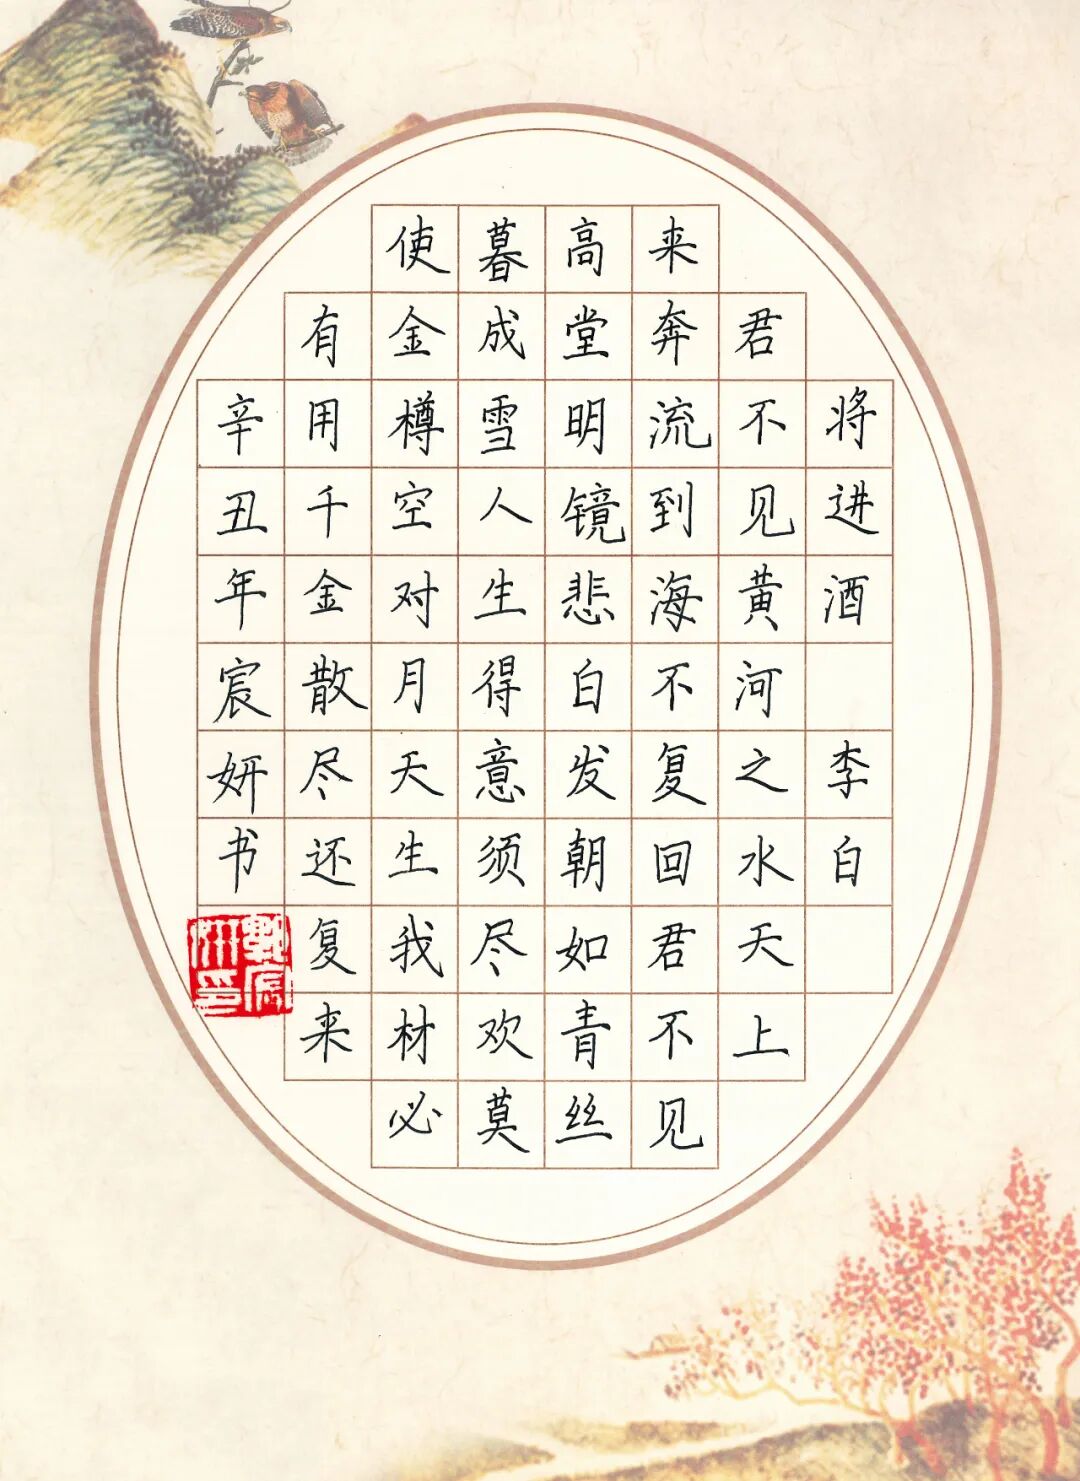 将进酒 李白
君不见黄河之水天上
来奔流到海不复回君不见
高堂明镜悲白发朝如青丝
暮成雪人生得意须尽欢莫
使金樽空对月天生我材必
有用千金散尽还复来
辛丑年宸妍书